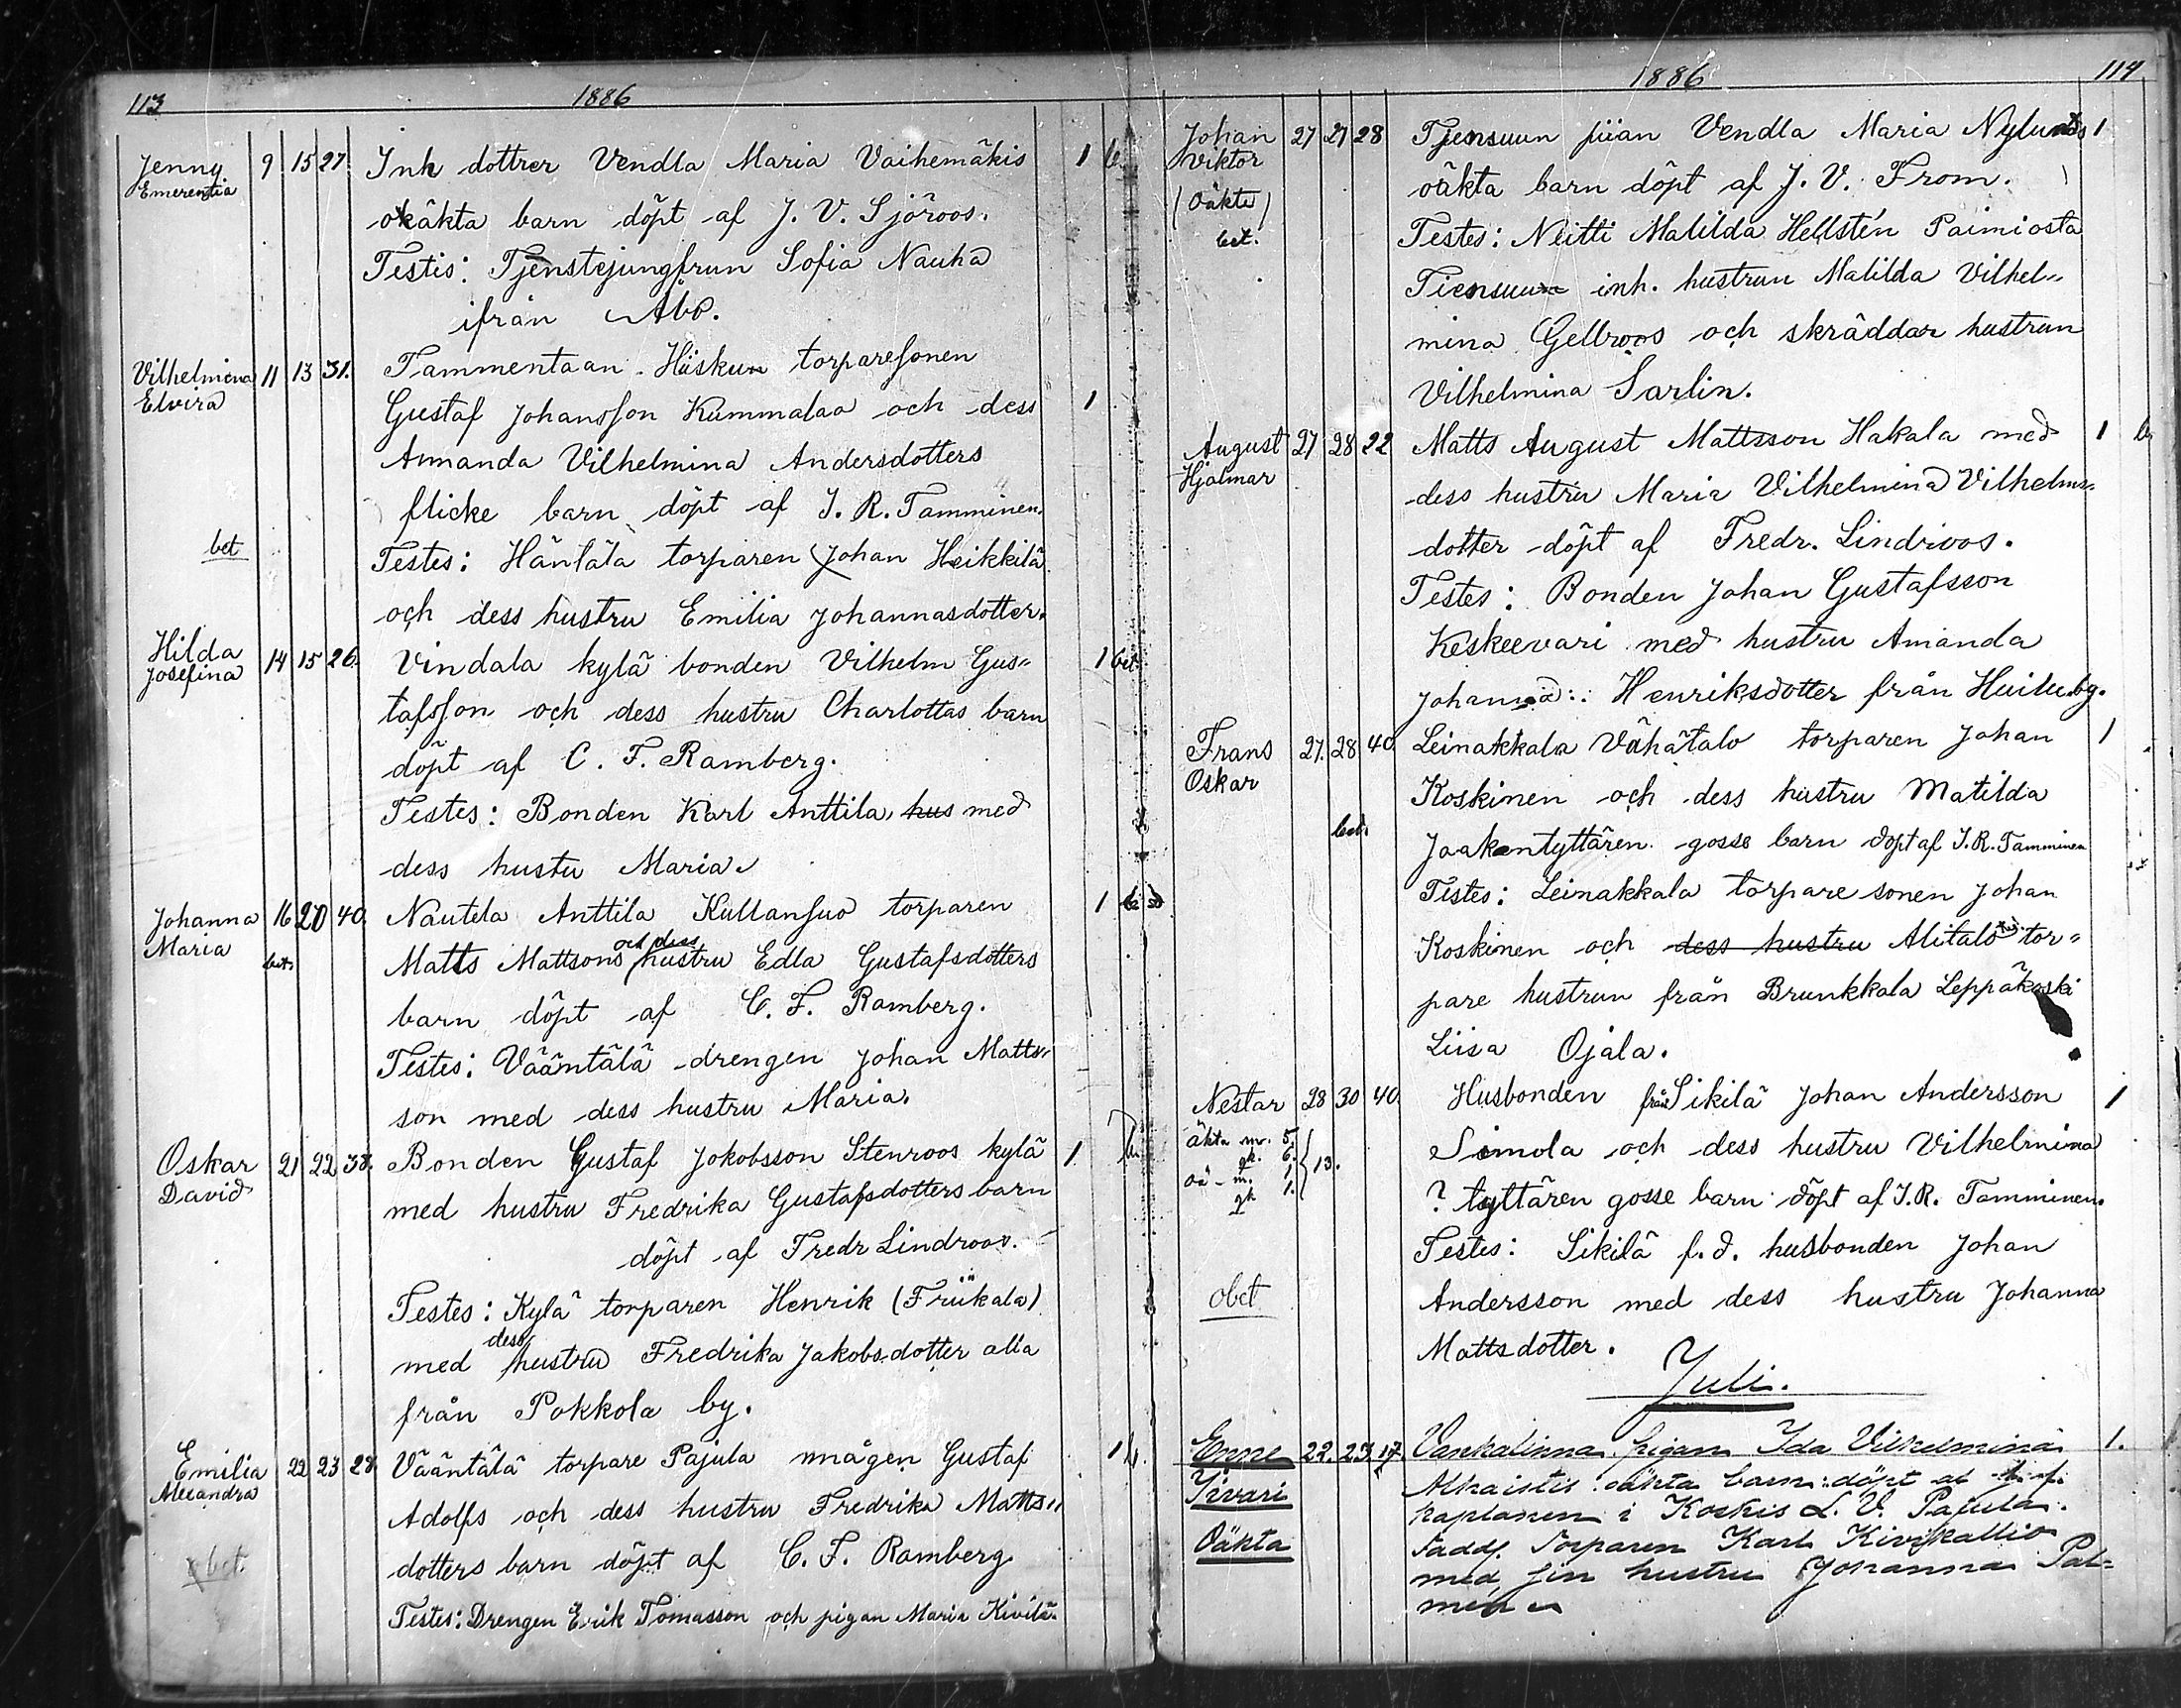 113 1886
Jenny 9 15 27. Inh dottrer Vendla Maria Vaihemäkis 1 b.
Emerentia
oäkta barn döpt af J. V. Sjöroos.
Testis: Tjenstejungfrun Sofia Nauha
ifrån Åbo.
Vilhelmina 11 13 31. Tammentaan Hiiskun torparesonen
Elvira Gustaf Johansson Kummalaa och dess 1
Amanda Vilhelmina Andersdotters
flicke barn döpt af J. R. Tamminen.
bet Testes: Häntälä torparen Johan Heikkilä
och dess hustru Emilia Johannasdotter.
Hilda 14 15 26. Vindala kylä bonden Vilhelm Gus- 1 bet
Josefina
tafsson och dess hustru Charlottas barn
döpt af C. F. Ramberg.
Testes: Bonden Karl Anttila, hus med
dess hustu Maria
Johanna 16 20 40. Nautela Anttila Kullansuo torparen 1
Maria bet. Matts Mattsons och dess hustru Edla Gustafsdotters
barn döpt af C. F. Ramberg.
Testes: Vääntälä drengen Johan Matts-
son med dess hustru Maria.
Oskar 21 22 38. Bonden Gustaf Jakobsson Stenroos kylä 1.
David med hustru Fredrika Gustafsdotters barn
döpt af Fredr Lindroos.
Testes: Kylä torparen Henrik (Friikala)
med dess hustru Fredrika Jakobsdotter alla
från Pokkola by.
Emilia 22 23 28 Vääntälä torpare Pajula mågen Gustaf 1 b.
Alexandra
Adolfs och dess hustru Fredrika Matts-
obet. dotters barn döpt af C. F. Ramberg
Testes: Drengen Erik Tomasson och pigan Maria Kivilä.
1886 114
Johan 27 27 28 Tjensuun piian Vendla Maria Nylunds 1
Viktor
(Oäkta) oäkta barn döpt af J. V. From.
bet. Testes: Neitti Matilda Hellstén Paimiosta
Tiensuun inh. hustrun Matilda Vilhel-
mina Gellroos och skräddar hustrun
Vilhelmina Sarlin.
August 27 28 22 Matts August Mattsson Hakala med 1 b
Hjalmar
dess hustru Maria Vilhelmina Vilhelms-
dotter döpt af Fredr. Lindroos.
Testes: Bonden Johan Gustafsson
Keskeevari med hustru Amanda
Johanna: Henriksdotter från Huilu by.
Frans 27. 28 40. Leinakkala Vähätalo torparen Johan 1
Oskar Koskinen och dess hustru Matilda
bet. Jaakontyttären gosse barn döpt af J. R. Tamminen
Testes: Leinakkala torpare sonen Johan
Koskinen och dess hustru Alitalo tor-
pare hustrun från Brunkkala Leppäkoski
Liisa Ojala.
Nestar 28 30 40. Husbonden från Sikilä Johan Andersson 1
äkta m. 5. Simola och dess hustru Vilhelmina
gk. 6. 13.
oä - m. 1 ? tyttären gosse barn döpt af J. R. Tamminen.
gk 1.
Testes: Sikilä f. d. husbonden Johan
obet Andersson med dess hustru Johanna
Mattsdotter.
Juli.
Enne 22. 23. 17. Vanhalinna pigan Ida Vilhelmina 1.
Iivari oäkta barn: döpt af
kaplanen i Koskis L. V. Pajula.
Oäkta Fadd. Torparen Karl Kivikallio
med sin hustru Johanna Pal-
men